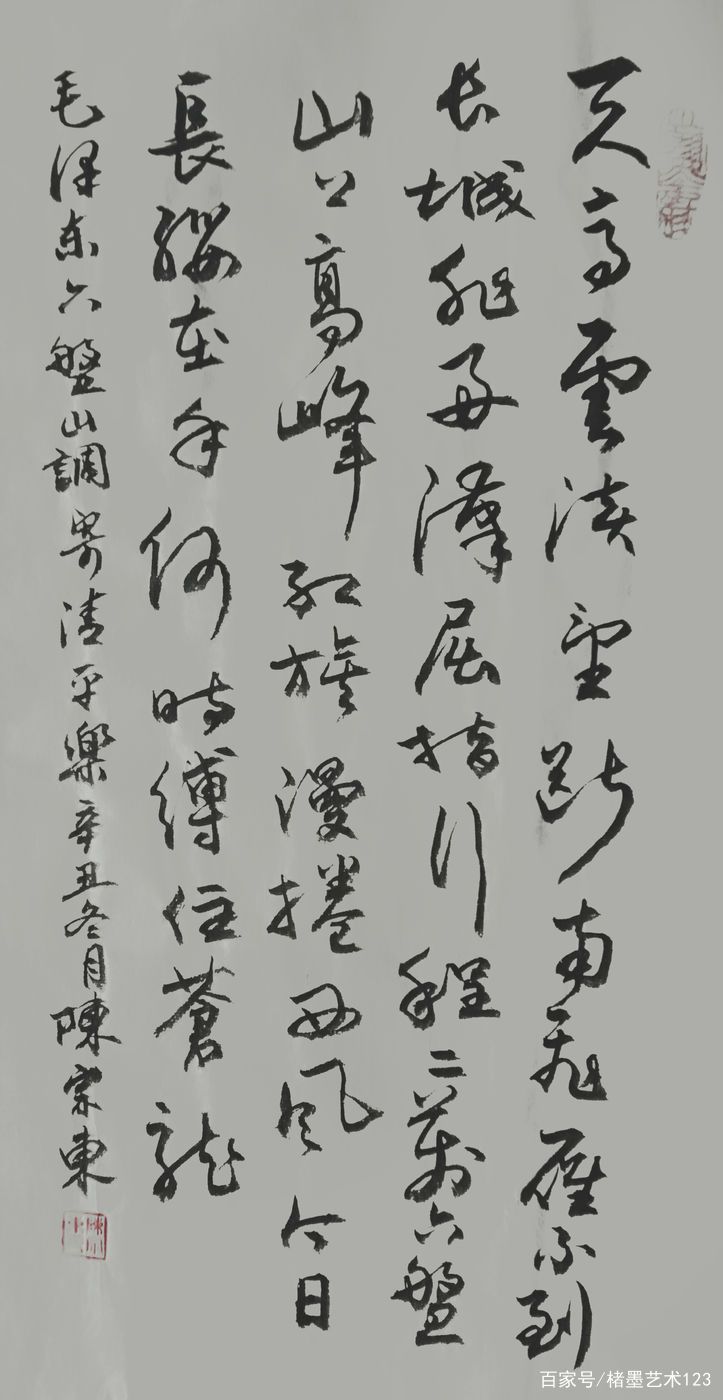 天高雲淡望断南飛雁不到
长城非好漢屈指行程二萬六盤
山上高峰紅旗漫捲西風今日
長纓在手何時縛住蒼龍
毛泽东六盤山調寄清平樂辛丑冬月陳宗東
百家号/楮墨艺术123